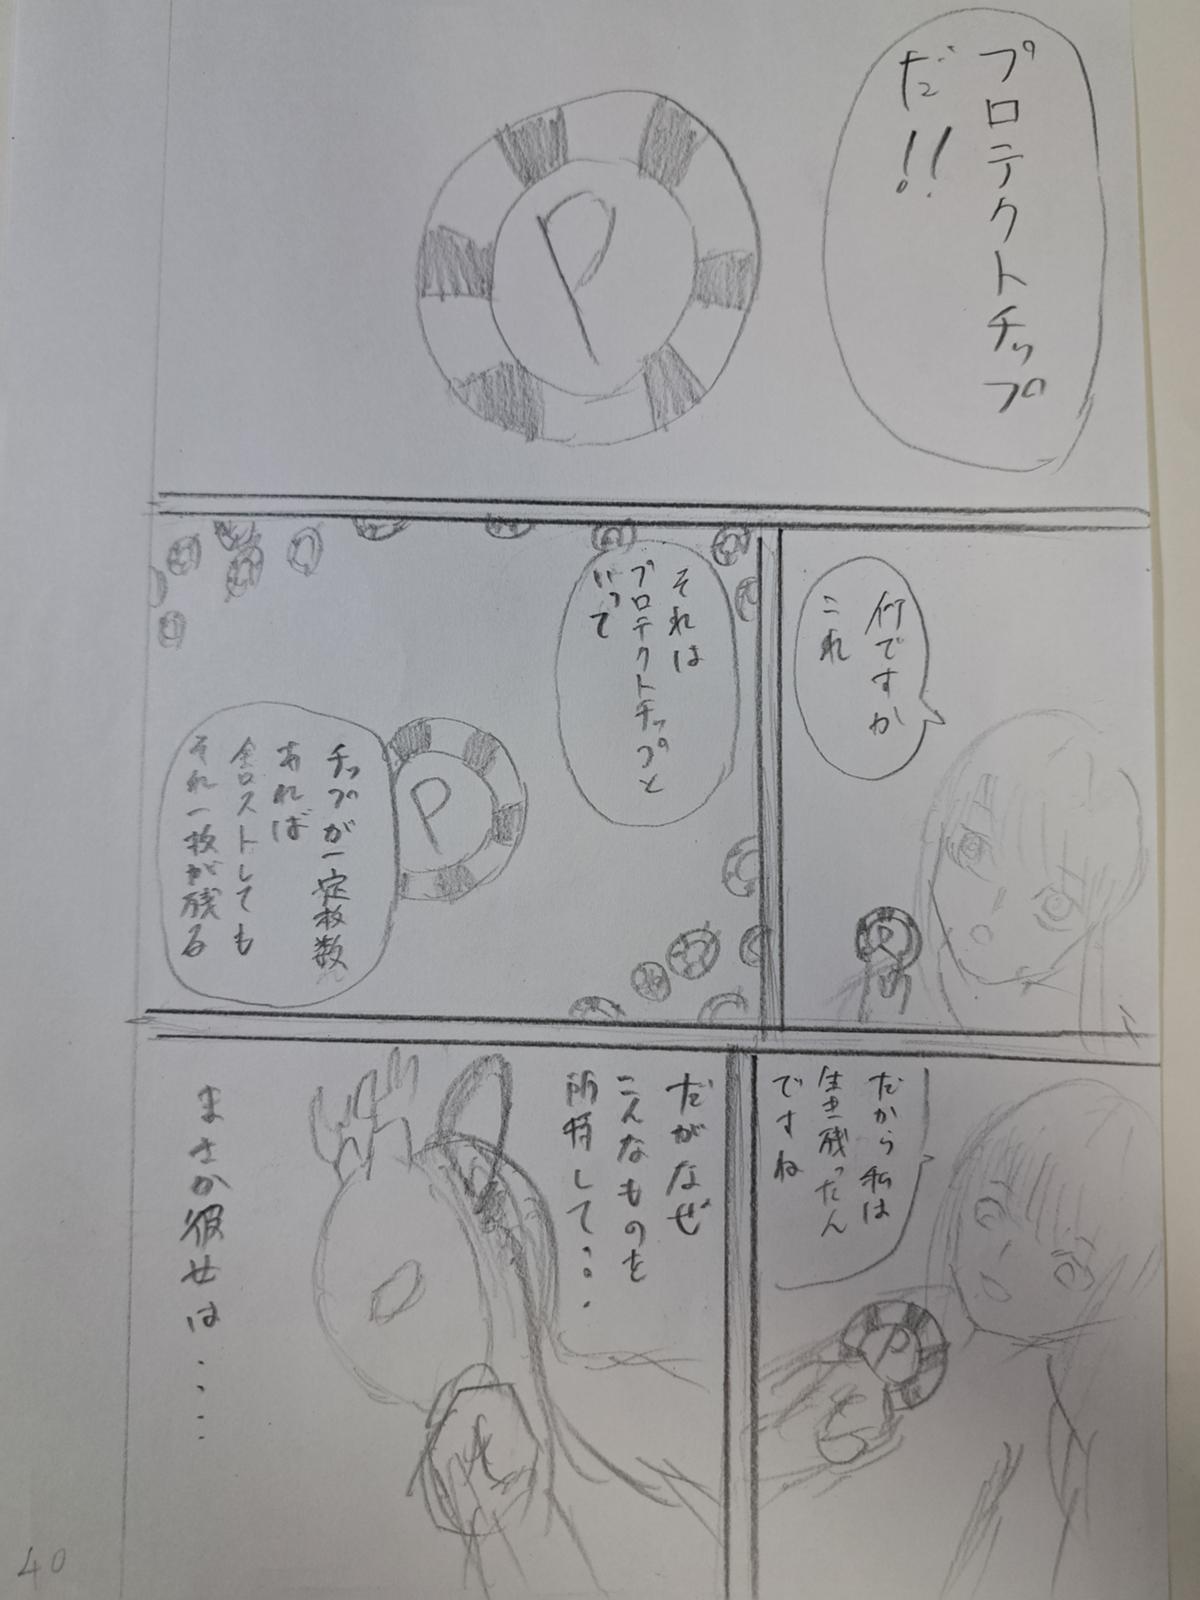 プロテクトチップ
だ!!
P
何ですか
これ
P
それは
プロテクトチップと
いって
P
チップが一定枚数
あれば
全ロストしても
それ一枚が残る
だから私は
生き残ったん
ですね
P
だがなぜ
こんなものを
所持して・・・
まさか彼女は・・・・
40